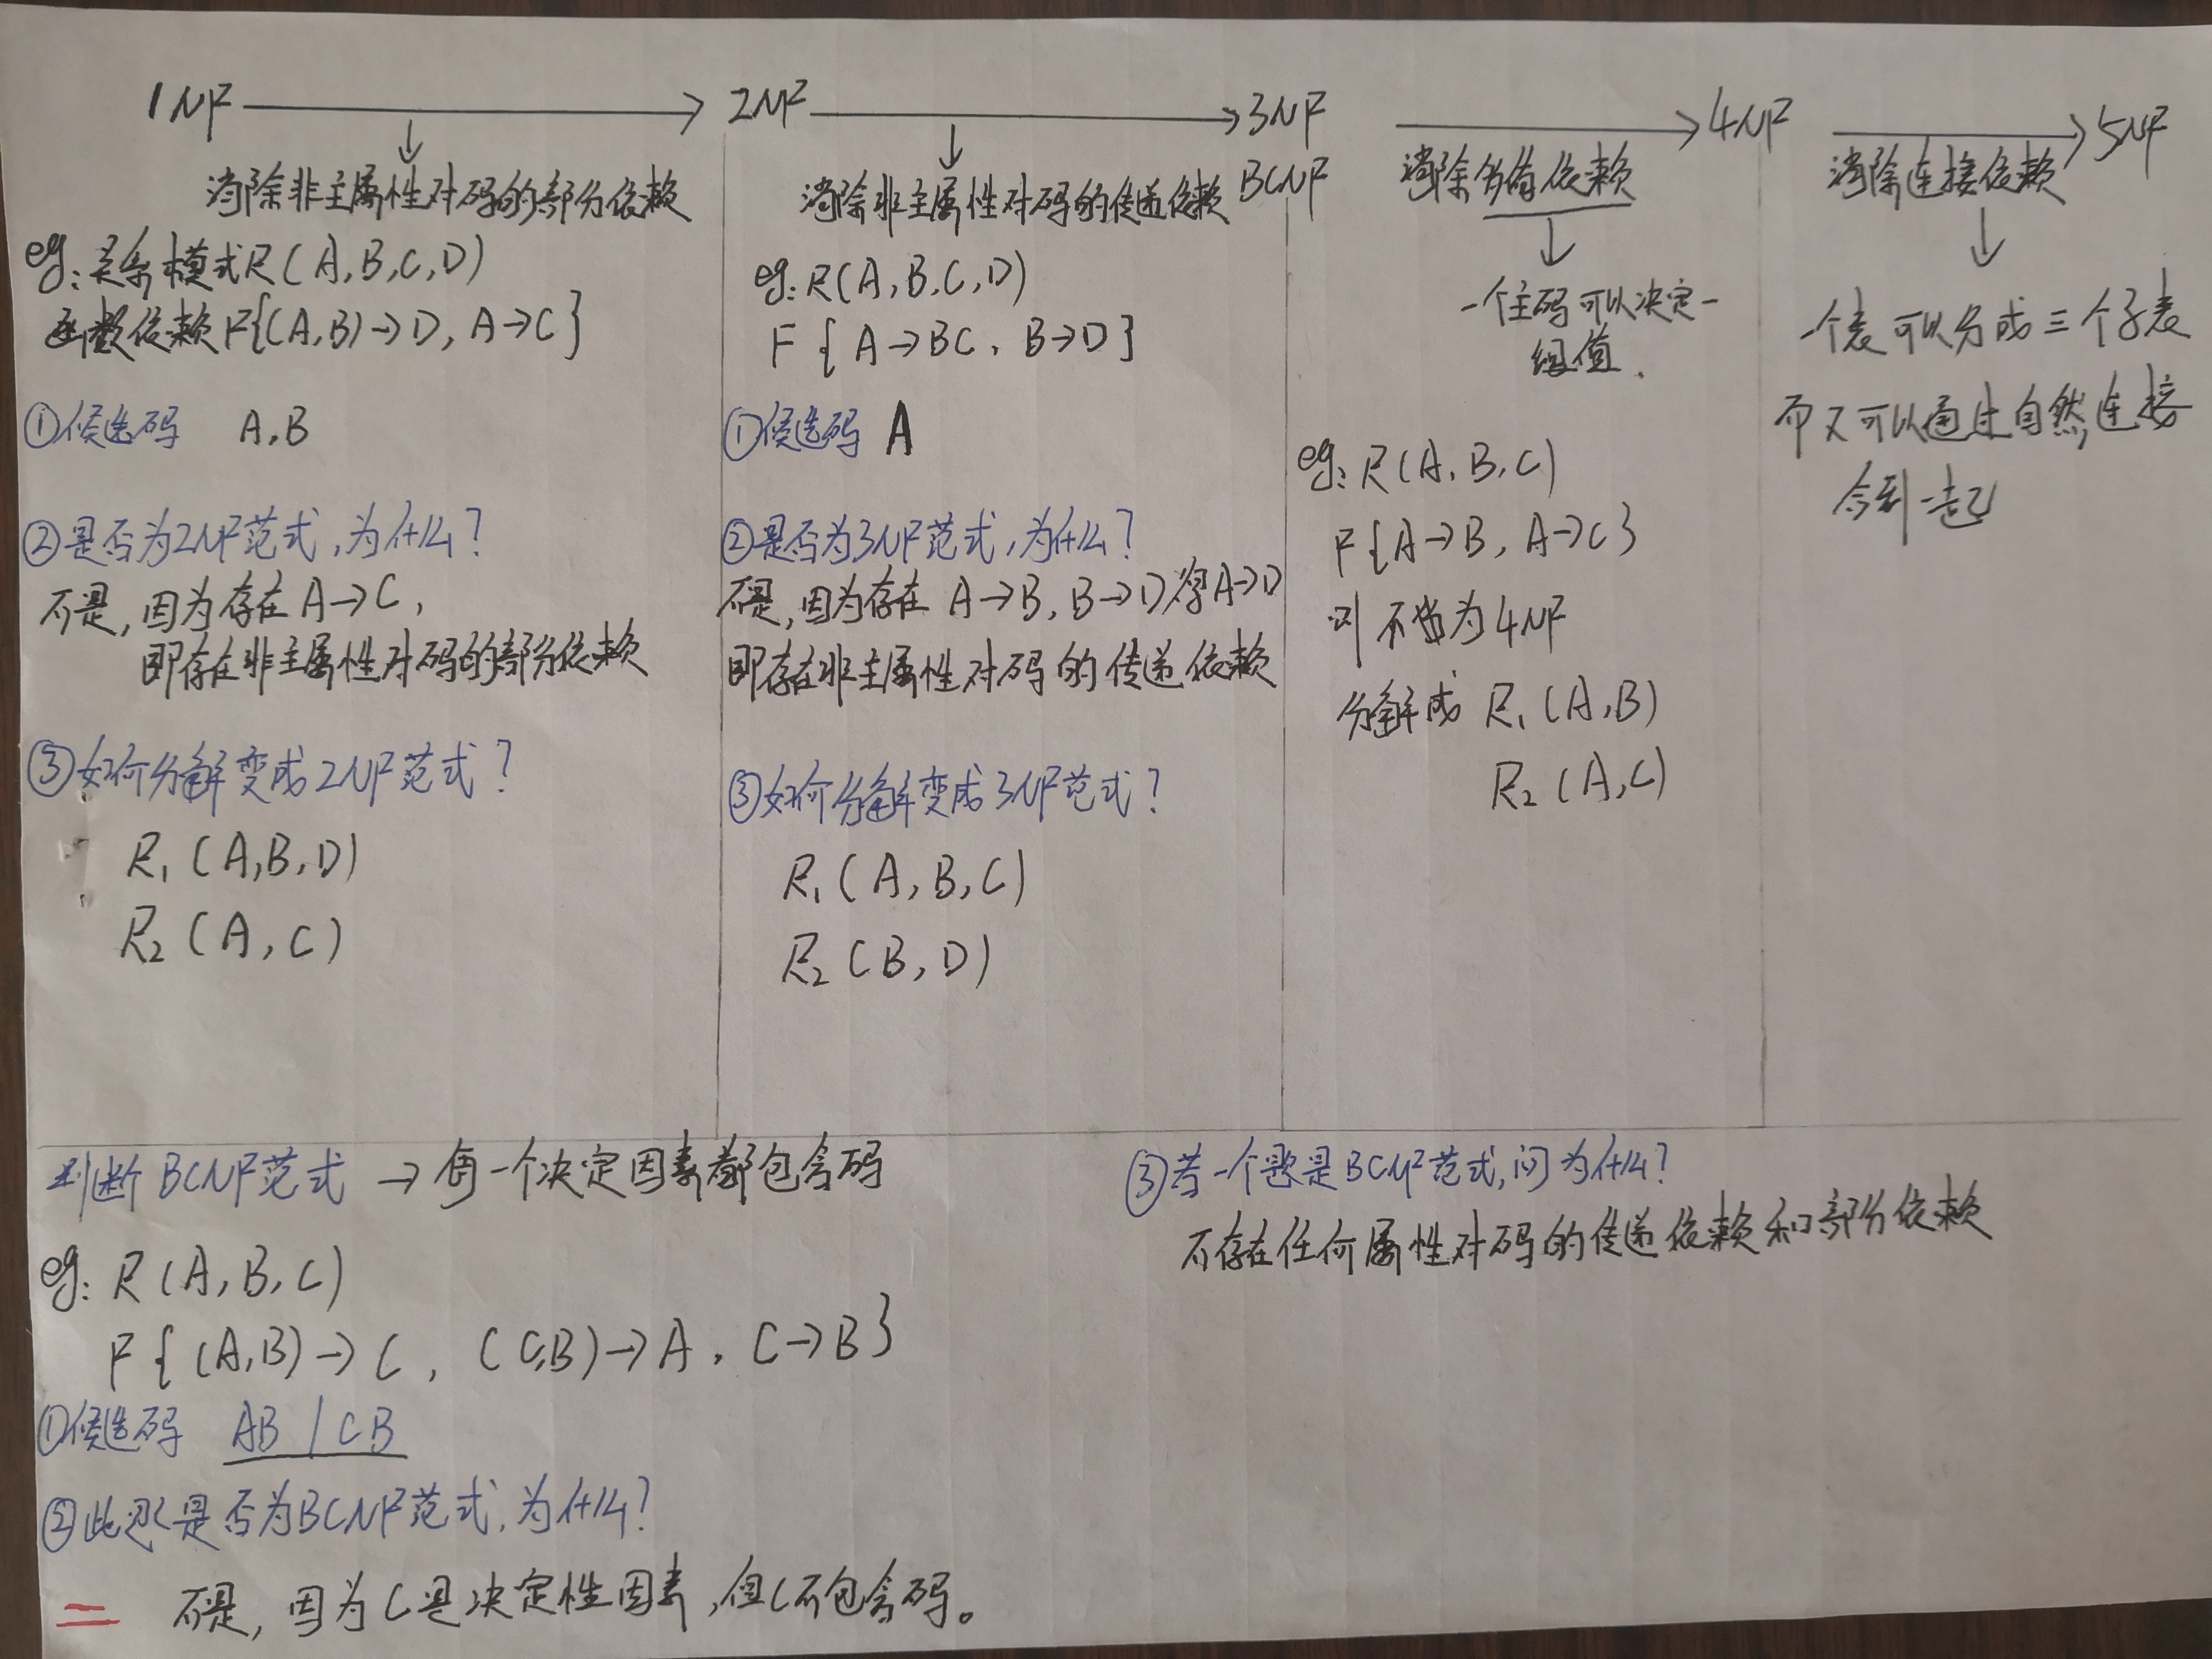 1NF → 2NF → 3NF → 4NF → 5NF
BCNF
↓
消除非主属性对码的部分依赖
eg: 关系模式R(A,B,C,D)
函数依赖F{(A,B)→D, A→C}
①候选码 A,B
②是否为2NF范式,为什么?
不是,因为存在A→C,
即存在非主属性对码的部分依赖
③如何分解变成2NF范式?
R₁(A,B,D)
R₂(A,C)
↓
消除非主属性对码的传递依赖
eg: R(A,B,C,D)
F{A→BC, B→D}
①候选码 A
②是否为3NF范式,为什么?
不是,因为存在 A→B, B→D得A→D
即存在非主属性对码的传递依赖
③如何分解变成3NF范式?
R₁(A,B,C)
R₂(B,D)
消除多值依赖
↓
一个主码可以决定一
组值.
eg: R(A,B,C)
F{A→B, A→C}
则不为4NF
分解成 R₁(A,B)
R₂(A,C)
消除连接依赖
↓
一个表可以分成三个子表
而又可以通过自然连接
合到一起
判断BCNF范式 → 每一个决定因素都包含码
eg: R(A,B,C)
F{(A,B)→C, (C,B)→A, C→B}
①候选码 AB / CB
②此是否为BCNF范式,为什么?
不是,因为C是决定性因素,但C不包含码。
③若一个是BCNF范式,问为什么?
不存在任何属性对码的传递依赖和部分依赖